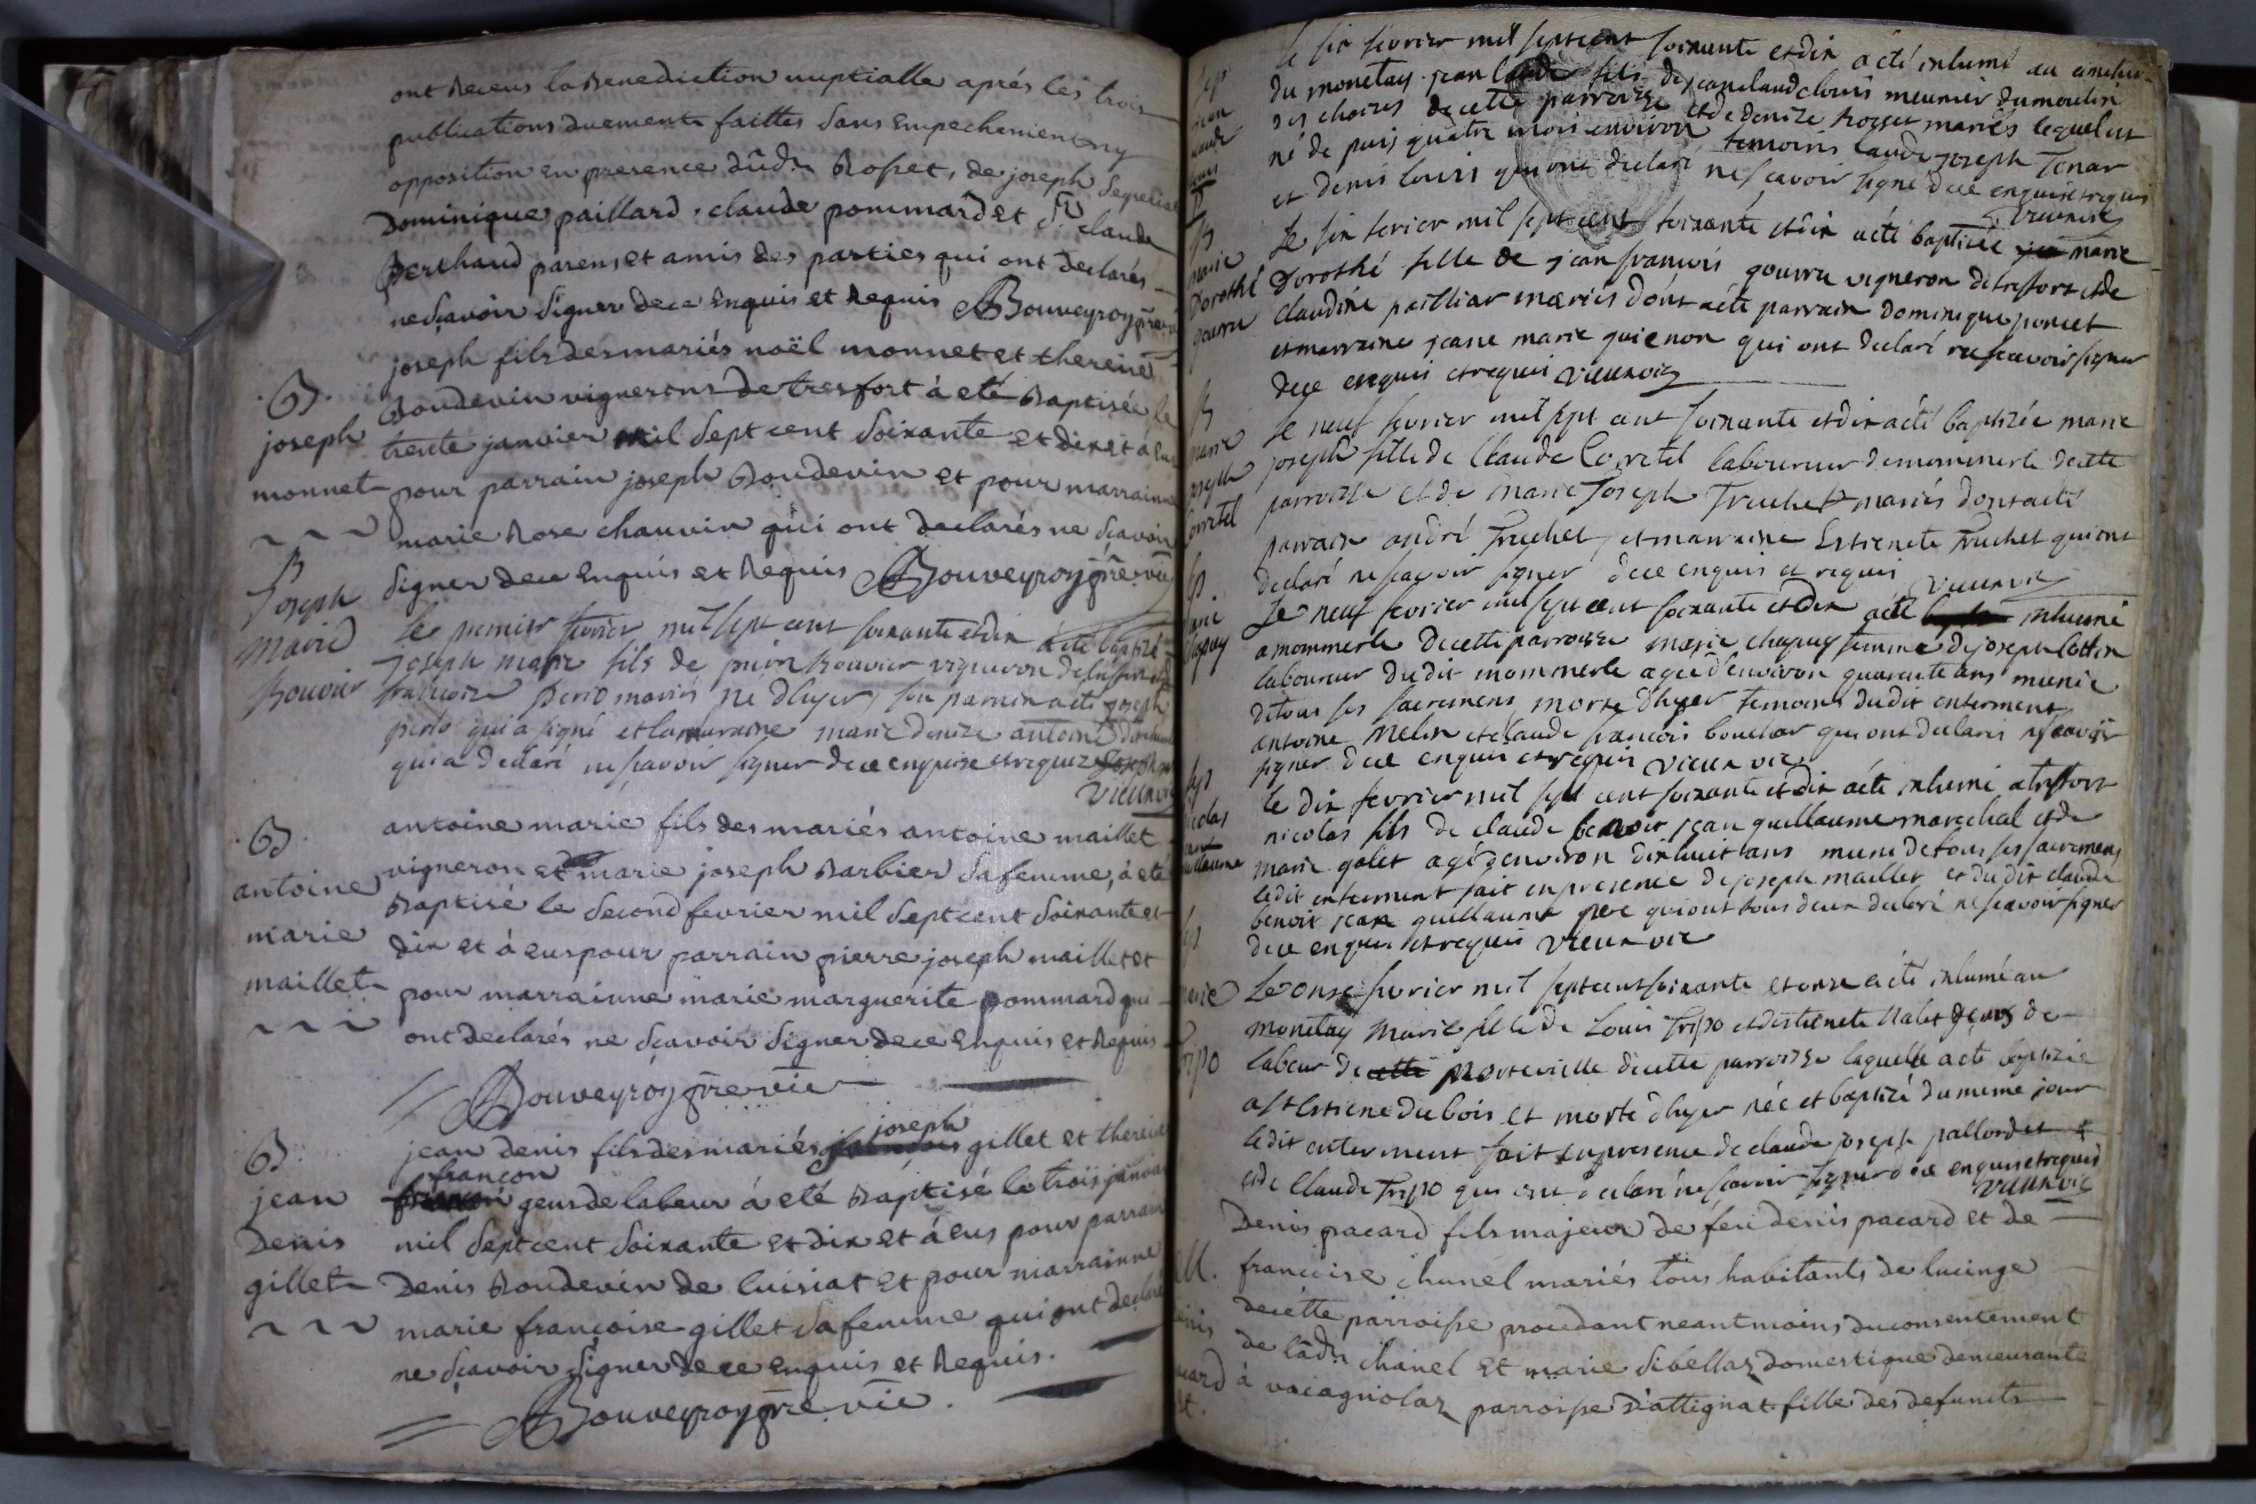 ont Receus la Benediction nuptialle aprés les trois
publications duement faittes sans Empechement ny
opposition en presence dûdn Rosset, de joseph
Dominique paillard, claude pommard et Sr claude
Berthaud parens et amis des parties qui ont declarés
ne sçavoir signer de ce Enquis et Requis Bouveyroy prê
joseph fils des mariés noël monnet et therese
B. Boudevin vignerons de tresfort à eté Baptisée le
joseph trente janvier mil sept cent soixante et dix et à eu
monnet pour parrain joseph Boudevin et pour marrainne
marie Rose chauvin qui ont declarés ne sçavoir
signer de ce Enquis et Requis Bouveyroy prê vic
B
Joseph
Marie
Bouvier
Le premier fevrier mil sept cent soixante et dix a été baptisé
joseph marie fils de pierre bouvier vigneron de tresfort et de
francoise perio mariés né d'hyer, son parrain a été joseph
perio qui a signé et la marraine marie denize antoine
qui a declaré ne scavoir signer de ce enquise et requize
vieux vic
B.
antoine
marie
maillet
antoine marie fils des mariés antoine maillet
vigneron et marie joseph Barbier sa femme, à eté
Baptisé le second fevrier mil sept cent soixante et
dix et à eus pour parrain pierre joseph maillet et
pour marrainne marie marguerite pommard qui
ont declarés ne sçavoir signer de ce Enquis et Requis
Bouveyroy prê vic
B.
jean
Denis
gillet
joseph
jean denis fils des mariés gillet et therese
françon
gens de labeur à eté Baptisé le trois janvier
mil sept cent soixante et dix et à eus pour parrain
Denis Boudevin de Cuisiat et pour marrainne
marie françoise gillet sa femme qui ont declaré
ne sçavoir signer de ce Enquis et Requis.
Bouveyroy prê vic.
le six fevrier mil sept cent soixante et dix a été inhumé au cimetier
du monetay jean claude fils de jean claude louis meunier du moulin
des choires de cette parroisse et de denize rosset mariés lequel est
né de puis quatre mois environ temoins claude joseph Tenar
et denis louis qui ont declaré ne scavoir signé de ce enquis et requis
vieux vic
B
marie
Dorothé
gouvru
Le six fevrier mil sept cent soixante et dix a été baptisée marie
Dorothé fille de jean francois gouvru vigneron de tresfort et de
claudine pailliar mariés dont a été parrain dominique poncet
et marraine jeane marie guienon qui ont declaré ne scavoir signer
de ce enquis et requis vieux vic
B
marie
joseph
Corretel
Le neuf fevrier mil sept cent soixante et dix a été baptizée marie
joseph fille de Claude Corretel laboureur de mommerle de cette
parroisse et de Marie Joseph Truchet mariés dont a été
parrain andré Truchet, et marraine Estienete Truchet qui ont
declaré ne scavoir signer de ce enquis et requis
vieux vic
Le neuf fevrier mil sept cent soixante et dix a été inhumé
a mommerle de cette parroisse marie chapuy femme de joseph Cottin
laboureur du dit mommerle agée d'environ quarente ans munie
de tous ses sacremens morte d'hyer temoins du dit enterment
antoine Melin et claude francois bouchar qui ont declarés ne scavoir
signer de ce enquis et requis vieux vic
le dix fevrier mil sept cent soixante et dix a été inhumé a tresfort
nicolas fils de claude benoit jean guillaume marechal et de
marie golet agé d'environ dixhuit ans muni de tous ses sacremens
le dit enterment fait en presence de joseph maillet et du dit claude
benoit jean guillaume pere qui ont tous deux declaré ne scavoir signer
de ce enquis et requis vieux vic
Le onse fevrier mil sept cent soixante et onze a été inhumé au
monetay Marie fille de Louis Tripo et destienete Nalet gens de
labeur de cette morteville de cette parroisse laquelle a été baptizée
a st Estiene du bois et morte d'hyer née et baptizé du meme jour
le dit enterment fait en presence de claude joseph pallordet
et de Claude Tripo qui ont declaré ne scavoir signer de ce enquis et requis
vieux vic
Denis pacard fils majeur de feu denis pacard et de
M. francoise chanel mariés tous habitants de lucinge
de cette parroisse procedant neantmoins du consentement
de ladn chanel et marie sibellaz domestique demeurante
à vacagnolaz parroisse d'attignat fille des defuncts